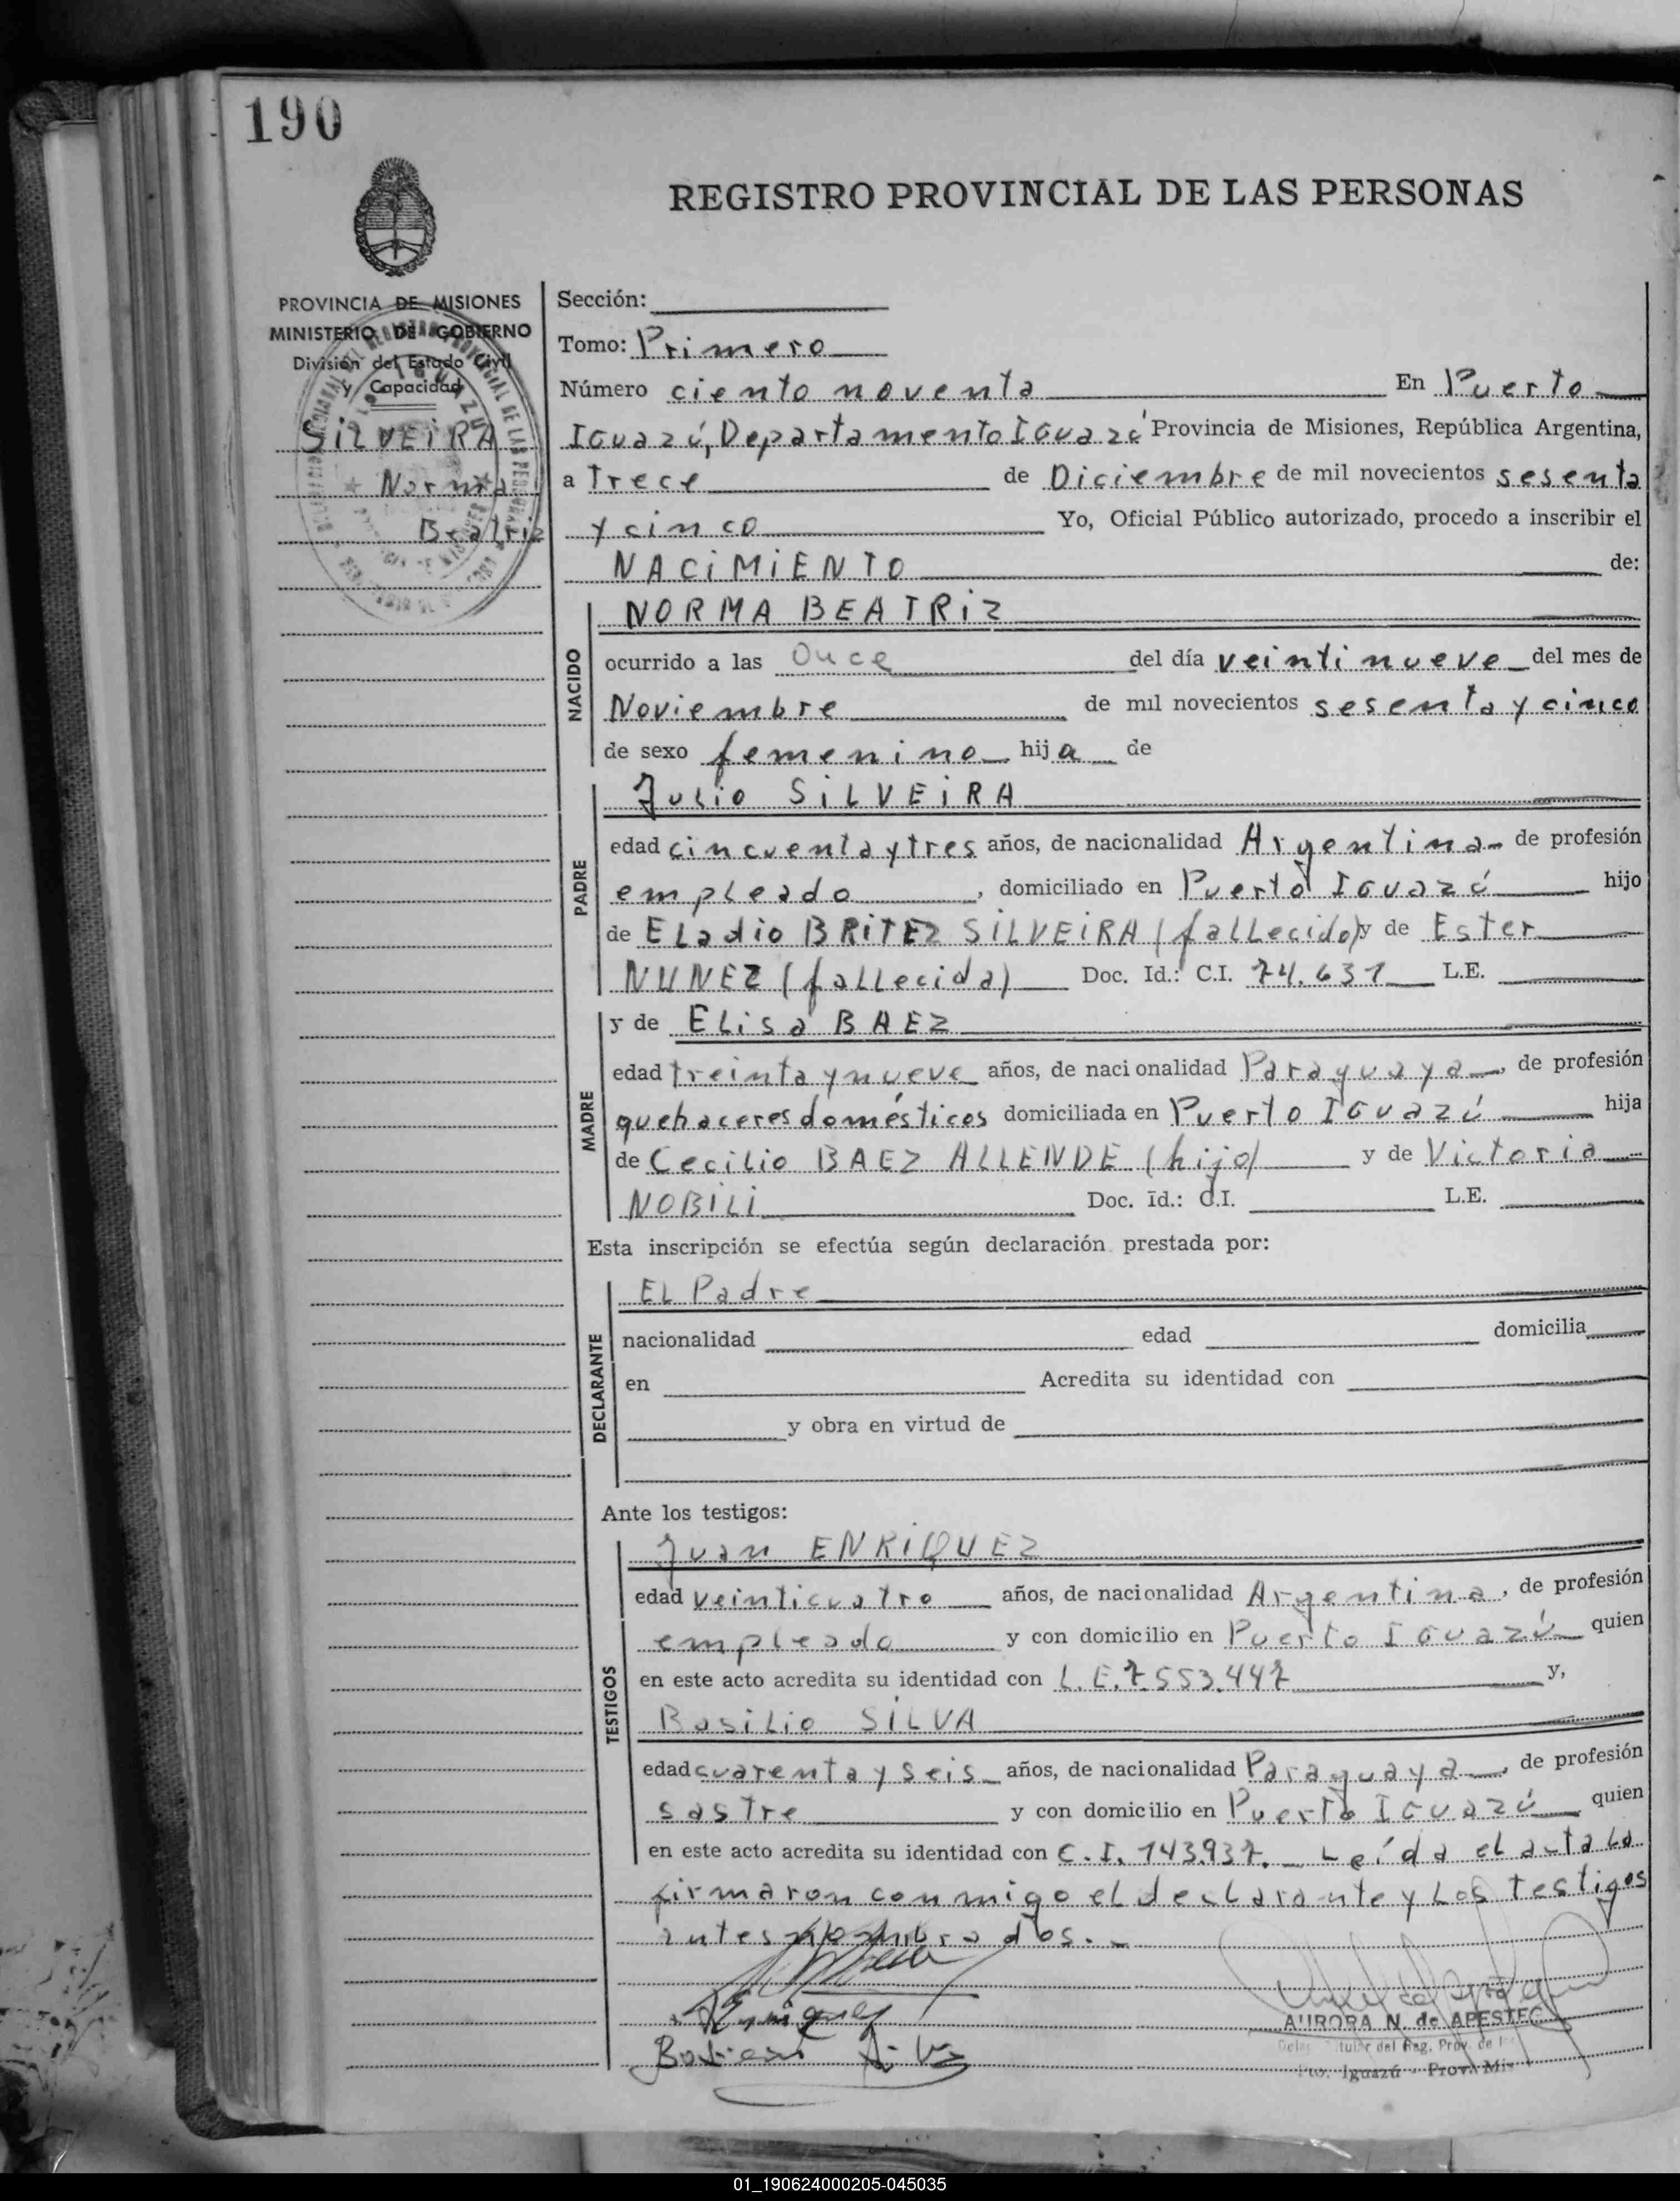 190
REGISTRO PROVINCIAL DE LAS PERSONAS
PROVINCIA DE MISIONES
MINISTERIO DE GOBIERNO
División del Estado Civil
y Capacidad
SILVEIRA
Norma
Beatriz
Sección:
Tomo: Primero
Número ciento noventa En Puerto
Iguazú, Departamento Iguazú Provincia de Misiones, República Argentina,
a Trece de Diciembre de mil novecientos sesenta
y cinco Yo, Oficial Público autorizado, procedo a inscribir el
NACIMIENTO de:
NACIDO
NORMA BEATRIZ
ocurrido a las Once del día veintinueve del mes de
Noviembre de mil novecientos sesenta y cinco
de sexo femenino hija de
PADRE
Julio SILVEIRA
edad cincuenta y tres años, de nacionalidad Argentina de profesión
empleado, domiciliado en Puerto Iguazú hijo
de Eladio BRITEZ SILVEIRA (fallecido) y de Ester
NUNEZ (fallecida) Doc. Id.: C.I. 74.631 L.E.
MADRE
y de Elisa BAEZ
edad treinta y nueve años, de nacionalidad Paraguaya, de profesión
quehaceres domésticos domiciliada en Puerto Iguazú hija
de Cecilio BAEZ ALLENDE (hijo) y de Victoria
NOBILI Doc. Id.: C.I. L.E.
Esta inscripción se efectúa según declaración prestada por:
DECLARANTE
El Padre
nacionalidad edad domicilia
en Acredita su identidad con
y obra en virtud de
Ante los testigos:
TESTIGOS
Juan ENRIQUEZ
edad veinticuatro años, de nacionalidad Argentina, de profesión
empleado y con domicilio en Puerto Iguazú quien
en este acto acredita su identidad con L.E. 7.553.447 y,
Basilio SILVA
edad cuarenta y seis años, de nacionalidad Paraguaya, de profesión
sastre y con domicilio en Puerto Iguazú quien
en este acto acredita su identidad con C.I. 143.937. Leída el acta la
firmaron conmigo el declarante y los testigos
antes nombrados.
AURORA N. de APESTEG
del Reg. Prov. de
Pto. Iguazú - Prov. Mis
01_190624000205-045035